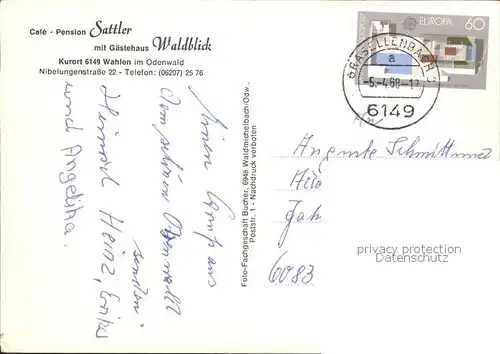 Café - Pension Sattler
mit Gästehaus Waldblick
Kurort 6149 Wahlen im Odenwald
Nibelungenstraße 22 - Telefon: (06207) 25 76
einen Gruß aus
dem schönen Odenwald
senden
Heinz, Erika
und Angelika.
Foto-Fachgeschäft Bucher, 6948 Waldmichelbach/Odw.,
Poststr. 1 - Nachdruck verboten
EUROPA 60
GRASELLENBACH
a
-5.-4.88-17
6149
Schmitt und
6083
privacy protection
Datenschutz